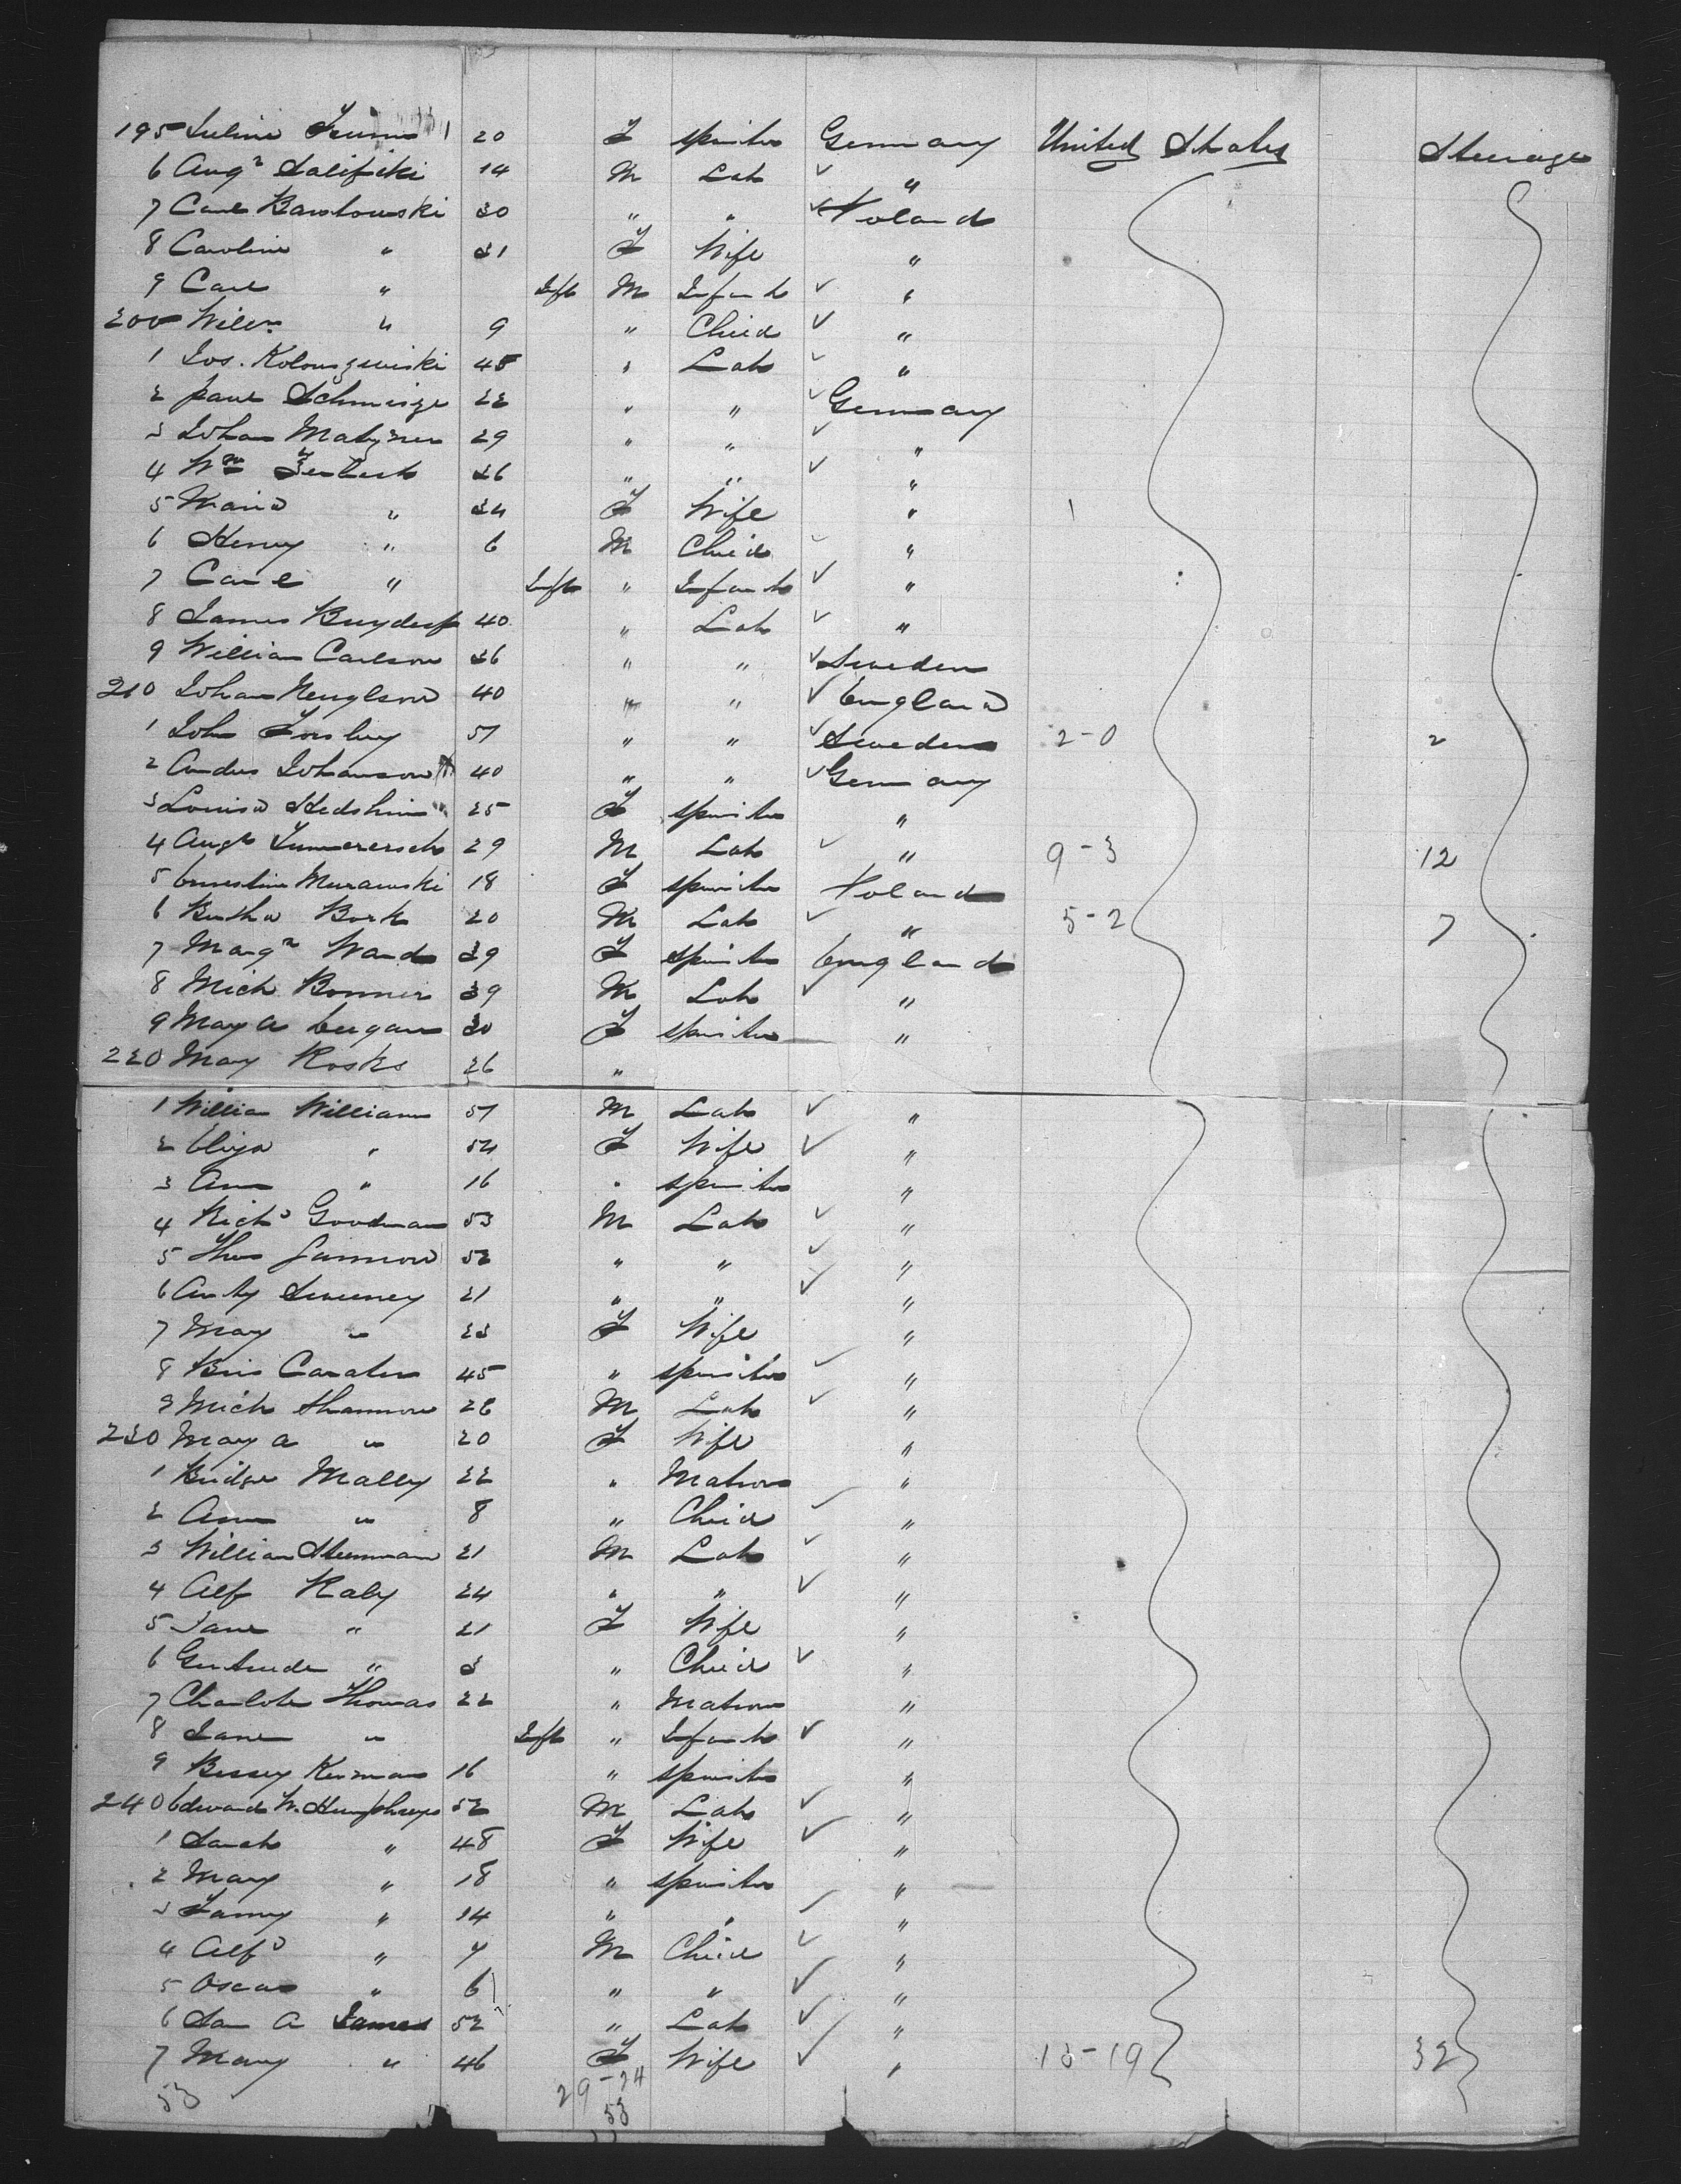 195 20 F spinster Germany United States Steerage
6 Augt 14 M Lab ✓ "
7 Carl 30 " " ✓ Poland
8 Caroline " 31 F Wife "
9 Carl " Inft M Infant ✓ "
200 Willm " 9 " Child ✓ "
1 Jos. 45 " Lab ✓ "
2 22 " " ✓ Germany
3 Johan 29 " " ✓ "
4 Wm 36 " " ✓ "
5 Maria " 34 F Wife "
6 Henry " 6 M Child ✓ "
7 Carl " Inft " Infant ✓ "
8 James 40 " Lab ✓ "
9 William Carlson 36 " " ✓ Sweden
210 Johan 40 " " ✓ England
1 John 51 " " ✓ Sweden 2-0 2
2 Andus Johanson 40 " " ✓ Germany
3 Louisa 25 F spinster "
4 Augt 29 M Lab ✓ " 9-3 12
5 Ernestine Murawski 18 F spinster Poland
6 Bertha Bork 20 M Lab ✓ " 5-2 7
7 Margt Ward 39 F spinster England
8 Mich Bonner 39 M Lab ✓ "
9 Mary A 30 F spinster "
220 Mary 26 "
1 William Williams 51 M Lab ✓ "
2 Eliza " 54 F Wife ✓ "
3 Ann " 16 " spinster "
4 Richd Goodman 53 M Lab ✓ "
5 Thos 52 " " ✓ "
6 Anty Sweeney 21 " " ✓ "
7 Mary " 23 F Wife "
8 45 " spinster ✓ "
9 Mich Shannon 28 M Lab ✓ "
230 Mary A " 20 F Wife "
1 Bridge Mally 22 " Matron "
2 Ann " 8 " Child ✓ "
3 William 21 M Lab ✓ "
4 Alf Raby 24 " " ✓ "
5 Jane " 21 F Wife "
6 Gertrude " 3 " Child ✓ "
7 Charlotte Thomas 22 " Matron "
8 Jane " Inft " Infant ✓ "
9 Bessey 16 " spinster "
240 Edward W. Humphreys 52 M Lab ✓ "
1 Sarah " 48 F Wife ✓ "
2 Mary " 18 " spinster "
3 Fanny " 14 " " ✓ "
4 Alfd " 7 M Child ✓ "
5 Oscar " 6 " " ✓ "
6 Sam A James 52 " Lab ✓ "
7 Mary " 46 F Wife ✓ " 13-19 32
53 29-24
53